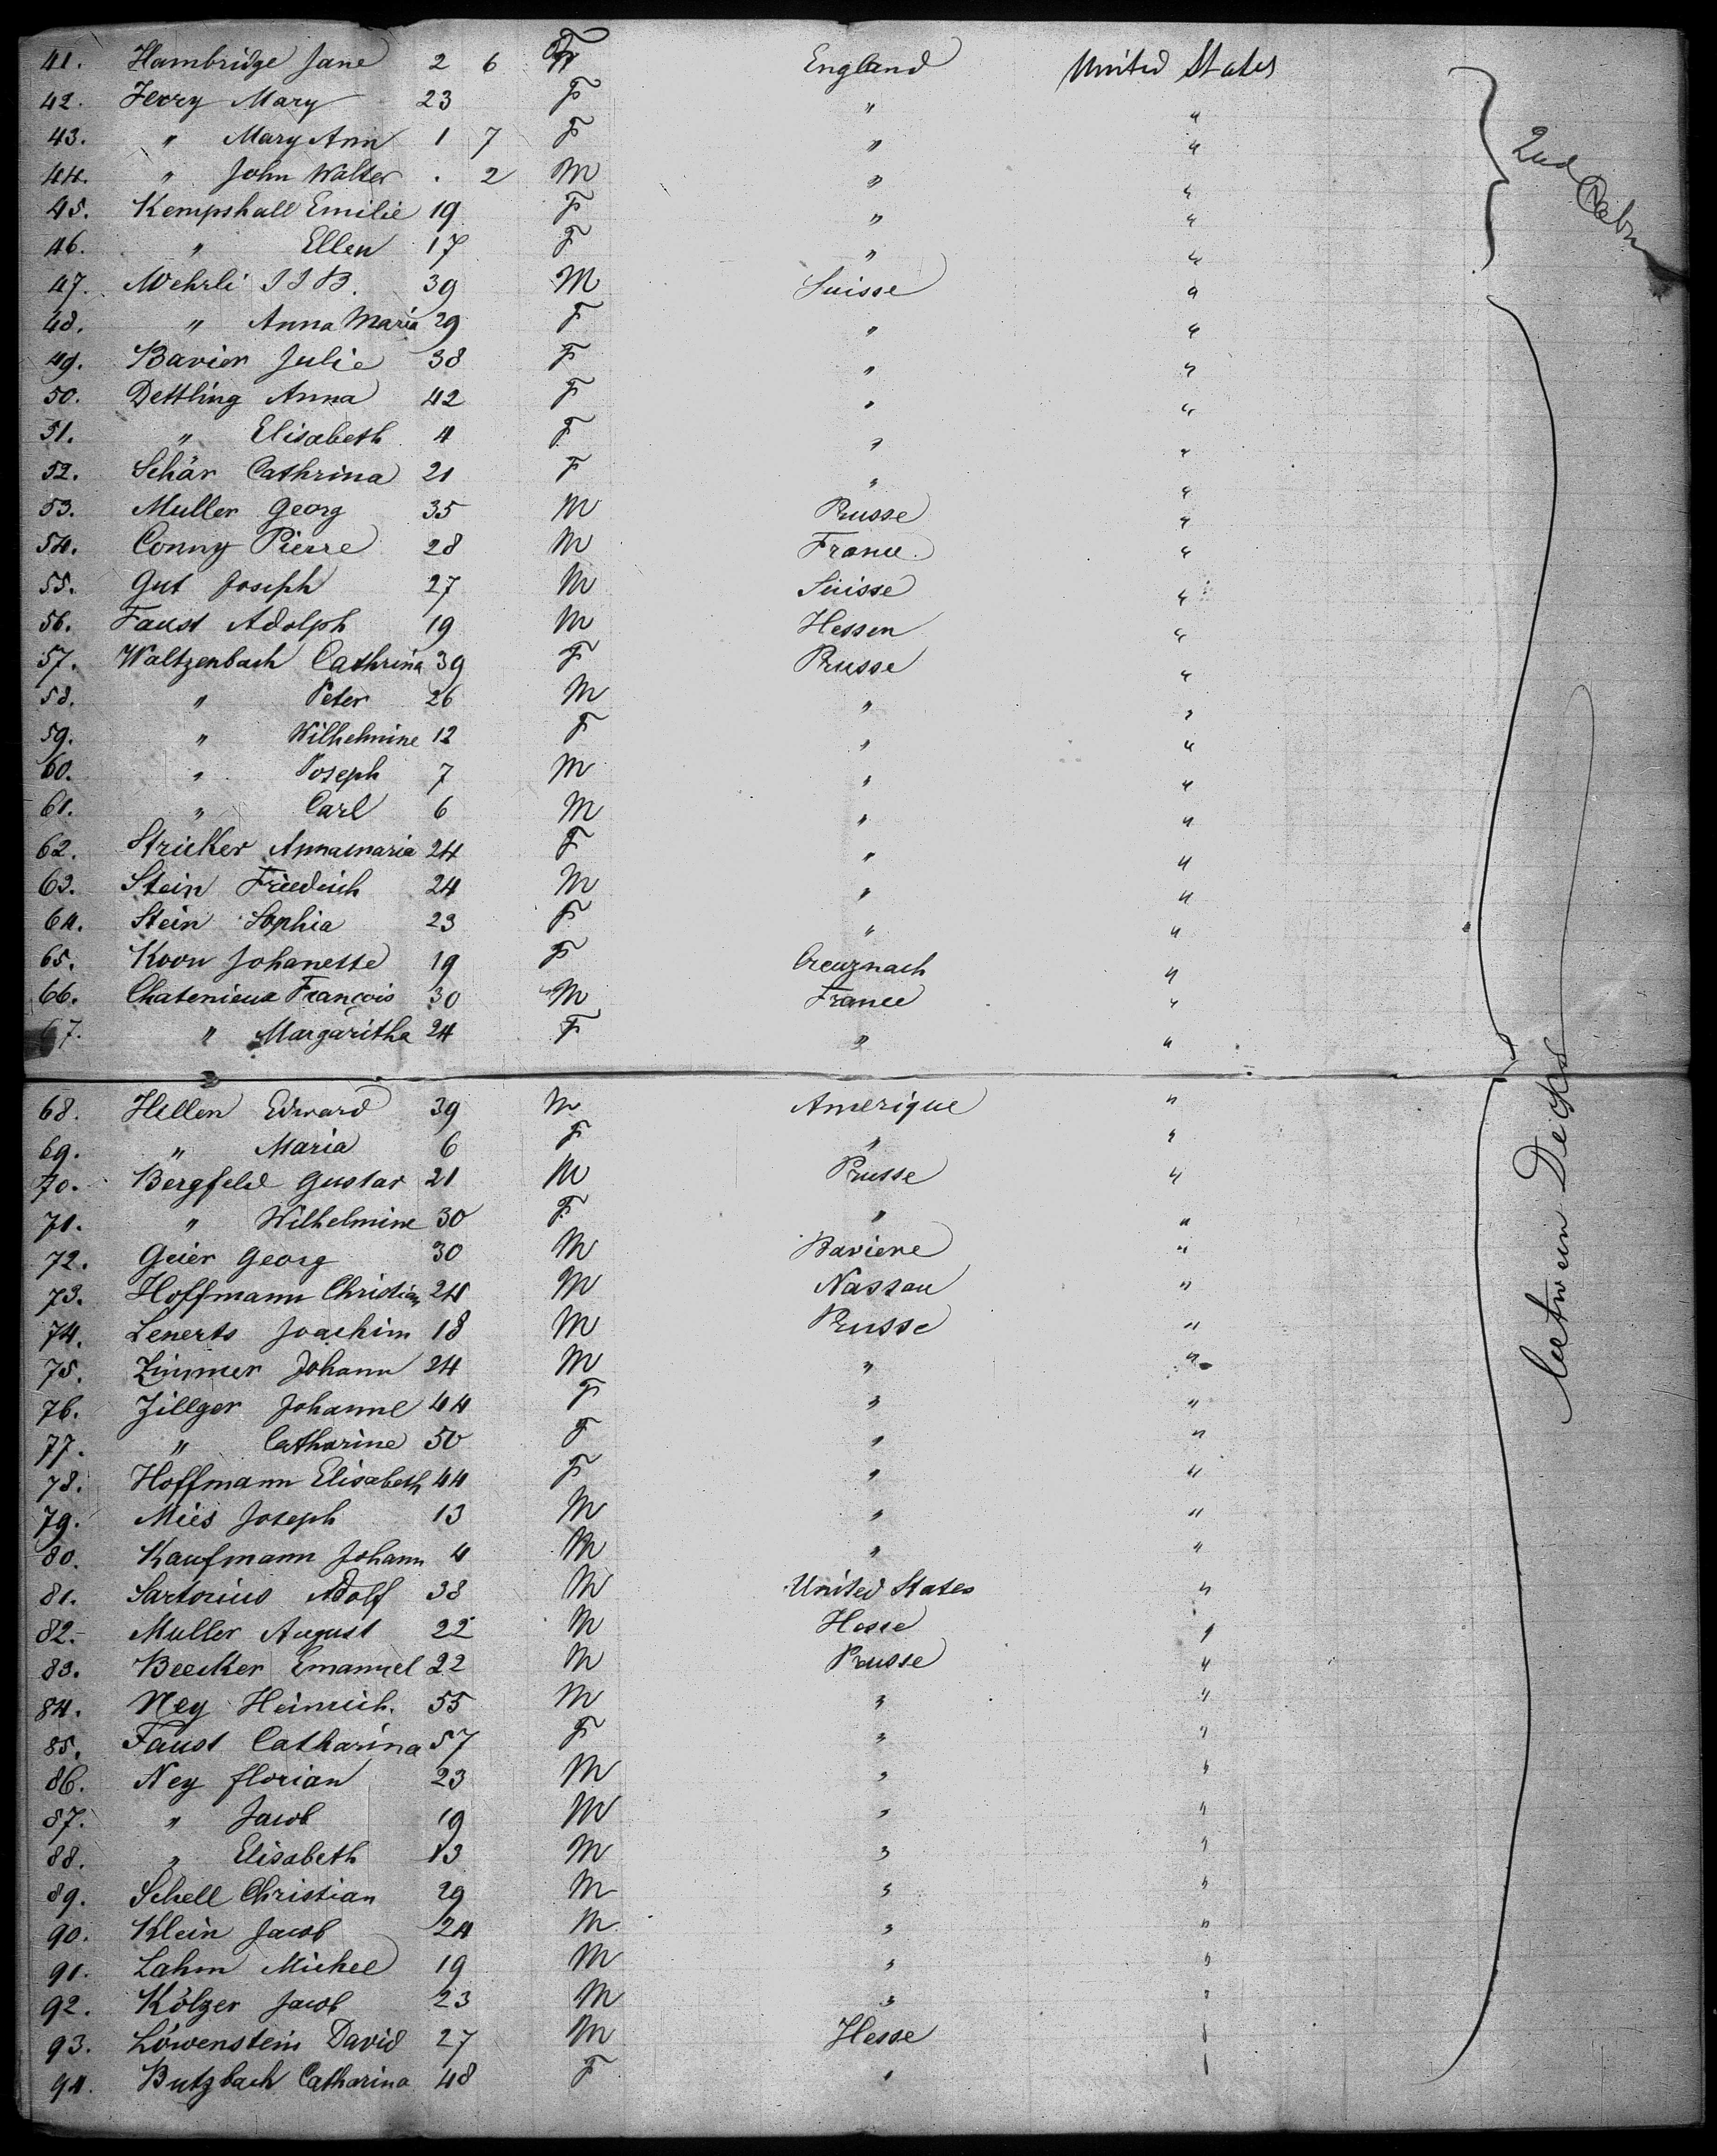 41. Hambridge Jane 2 6 F England United States
42. Jerry Mary 23 F " "
43. " Mary Ann 1 7 F " "
44. " John Walter . 2 M " "
45. Kempshall Emilie 19 F " "
46. " Ellen 17 F " "
2nd Cabin
47. Wehrli J J B. 39 M Suisse "
48. " Anna Maria 29 F " "
49. Bavier Julie 38 F " "
50. Dettling Anna 42 F " "
51. " Elisabeth 4 F " "
52. Schär Cathrina 21 F " "
53. Muller Georg 35 M Prusse "
54. Conny Pierre 28 M France "
55. Gut Joseph 27 M Suisse "
56. Faust Adolph 19 M Hessen "
57. Waltzenbach Cathrina 39 F Prusse "
58. " Peter 26 M " "
59. " Wilhelmine 12 F " "
60. " Joseph 7 M " "
61. " Carl 6 M " "
62. Stricker Annamaria 24 F " "
63. Stein Friedrich 24 M " "
64. Stein Sophia 23 F " "
65. Koon Johanette 19 F Creuznach "
66. Chatenieux François 30 M France "
67. " Margaritha 24 F " "
68. Hellen Edward 39 M Amerique "
69. " Maria 6 F " "
70. Bergfeld Gustav 21 M Prusse "
71. " Wilhelmine 30 F " "
72. Geier Georg 30 M Baviere "
73. Hoffmann Christian 24 M Nassau "
74. Lenerts Joachim 18 M Prusse "
75. Zimmer Johann 24 M " "
76. Zillger Johanne 44 F " "
77. " Catharine 50 F " "
78. Hoffmann Elisabeth 44 F " "
79. Mies Joseph 13 M " "
80. Kaufmann Johann 4 M " "
81. Sartorius Adolf 38 M United States "
82. Muller August 22 M Hesse "
83. Beecker Emanuel 22 M Prusse "
84. Ney Heinrich. 55 M " "
85. Faust Catharina 57 F " "
86. Ney florian 23 M " "
87. " Jacob 19 M " "
88. " Elisabeth 13 M " "
89. Schell Christian 29 M " "
90. Klein Jacob 24 M " "
91. Lahm Michel 19 M " "
92. Kölzer Jacob 23 M " "
93. Löwenstein David 27 M Hesse "
94. Butzbach Catharina 48 F " "
between Decks